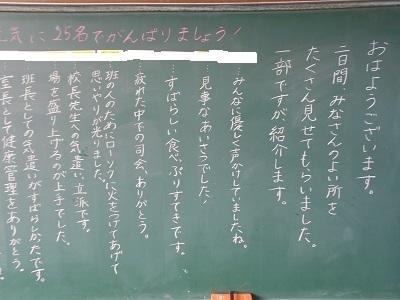 元気に25名でがんばりましょう！
おはようございます。
二日間、みなさんのよい所を
たくさん見せてもらいました。
一部ですが紹介します。
…みんなに優しく声かけしていましたね。
…見事なあいさつでした！
…すばらしい食べぶりすてきです。
…疲れた中での司会、ありがとう。
班の人のためにローソクに火をつけてあげて
思いやりが光りました。
校長先生への気遣い、立派です。
場を盛り上げるのが上手でした。
班長としての気遣いがすばらしかったです。
室長として健康管理をありがとう。